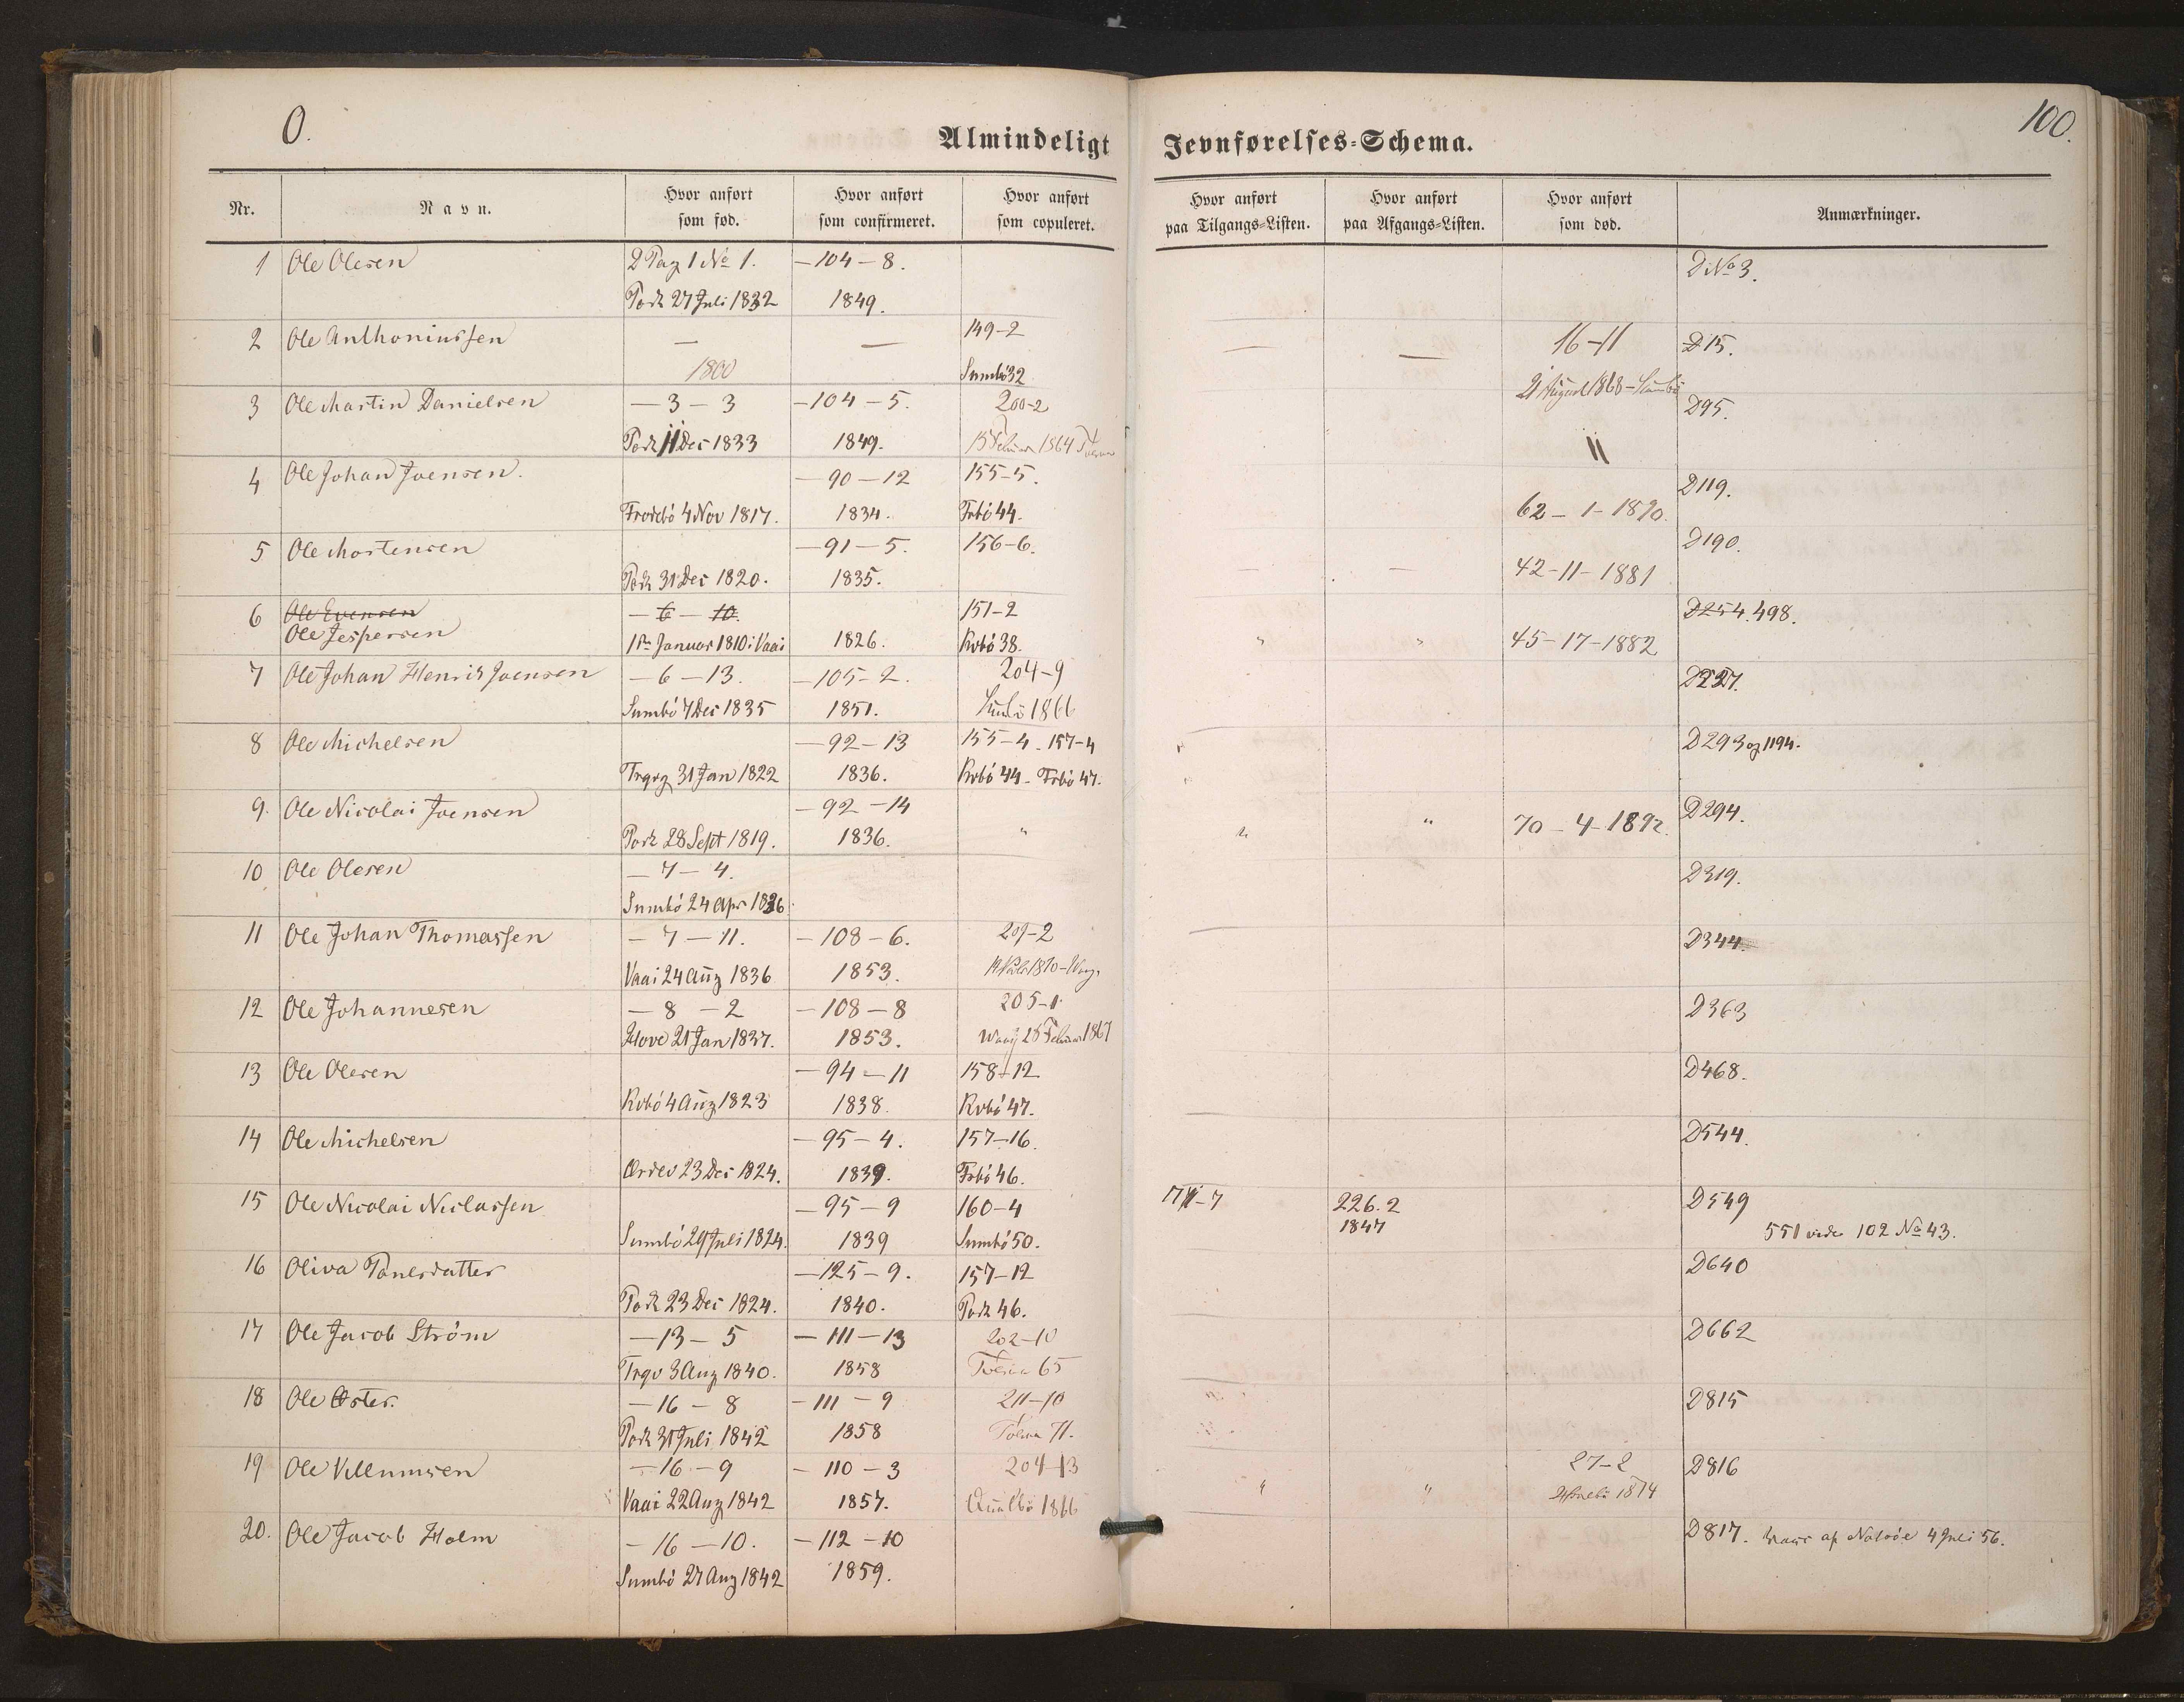 O.
100.
Almindeligt Jevnførelses-Schema.
Nr. Navn. Hvor anført som fød. Hvor anført som confirmeret. Hvor anført som copuleret. Hvor anført paa Tilgangs-Listen. Hvor anført paa Afgangs-Listen. Hvor anført som død. Anmærkninger.
1 Ole Olesen D Pag 1 No 1. —104—8. D No 3.
Pork 27 Juli 1832 1849.
2 Ole Anthoniussen — — 149-2 — — 16-11 D15.
1800 Sumbö32 21 August 1868-Sumbö
3 Ole Martin Danielsen —3—3 —104—5. 200-2 D95.
Pork 11 Dec 1833 1849. 1864 11
4 Ole Johan Joensen. —90—12 155-5. D119.
Frodebö 4 Nov 1817. 1834. Frbö 44. 62-1-1890.
5 Ole Mortensen —91—5. 156-6. D190.
Pork 31 Dec 1820. 1835. — — 42-11-1881
6 Ole Evensen —6—10. 151-2 D254. 498.
Ole Jespersen 1ste Januar 1810 i Vaai 1826. Kvbö 38. " " 45-17-1882
7 Ole Johan Henrik Joensen —6—13. —105-2. 204-9 D227.
Sumbö 7 Dec 1835 1851. Sumbö 1866
8 Ole Michelsen —92—13 155-4. 157-4 D293 og 1194.
Trgvg 31 Jan 1822 1836. Kvbö 44- Frbö 47.
9. Ole Nicolai Joensen —92—14 D294.
Pork 28 Sept 1819. 1836. " " " 70-4-1892.
10 Ole Olesen —7—4. D319.
Sumbö 24 Apr 1836.
11 Ole Johan Thomassen —7—11. —108—6. 209-2 — D344.
Vaai 24 Aug 1836 1853. 1870-Waag
12 Ole Johannesen —8—2 —108—8 205-1 D363
Hove 21 Jan 1837. 1853. Waag 28 Februar 1867
13 Ole Olesen —94—11 158-12 D468.
Kvbö 4 Aug 1823 1838. Kvbö 47.
14 Ole Michelsen —95—4. 157-16. D544.
Ördev 23 Dec 1824. 1839. Frbö 46.
15 Ole Nicolai Niclassen —95—9 160-4 171-7 226.2 D549
Sumbö 29 Juli 1824. 1839 Sumbö 50. 1847 551 vide 102 No 43.
16 Oliva Poulsdatter —125—9. 157-12 D640
Pork 23 Dec 1824. 1840. Pork 46.
17 Ole Jacob Ström —13—5 —111—13 202-10 D662
Trgv 3 Aug 1840. 1858 65
18 Ole Öster. —16—8 —111—9 211-10 D815
Pork 31 Juli 1842 1858 71.
19 Ole Villumsen —16—9 —110—3 204-13 27-2 D816
Vaai 22 Aug 1842 1857. Qualbö 1866 " " 1874
20. Ole Jacob Holm —16—10. —112—10 D817. Vacc af Nolsöe 4 Juli 56.
Sumbö 27 Aug 1842 1859.